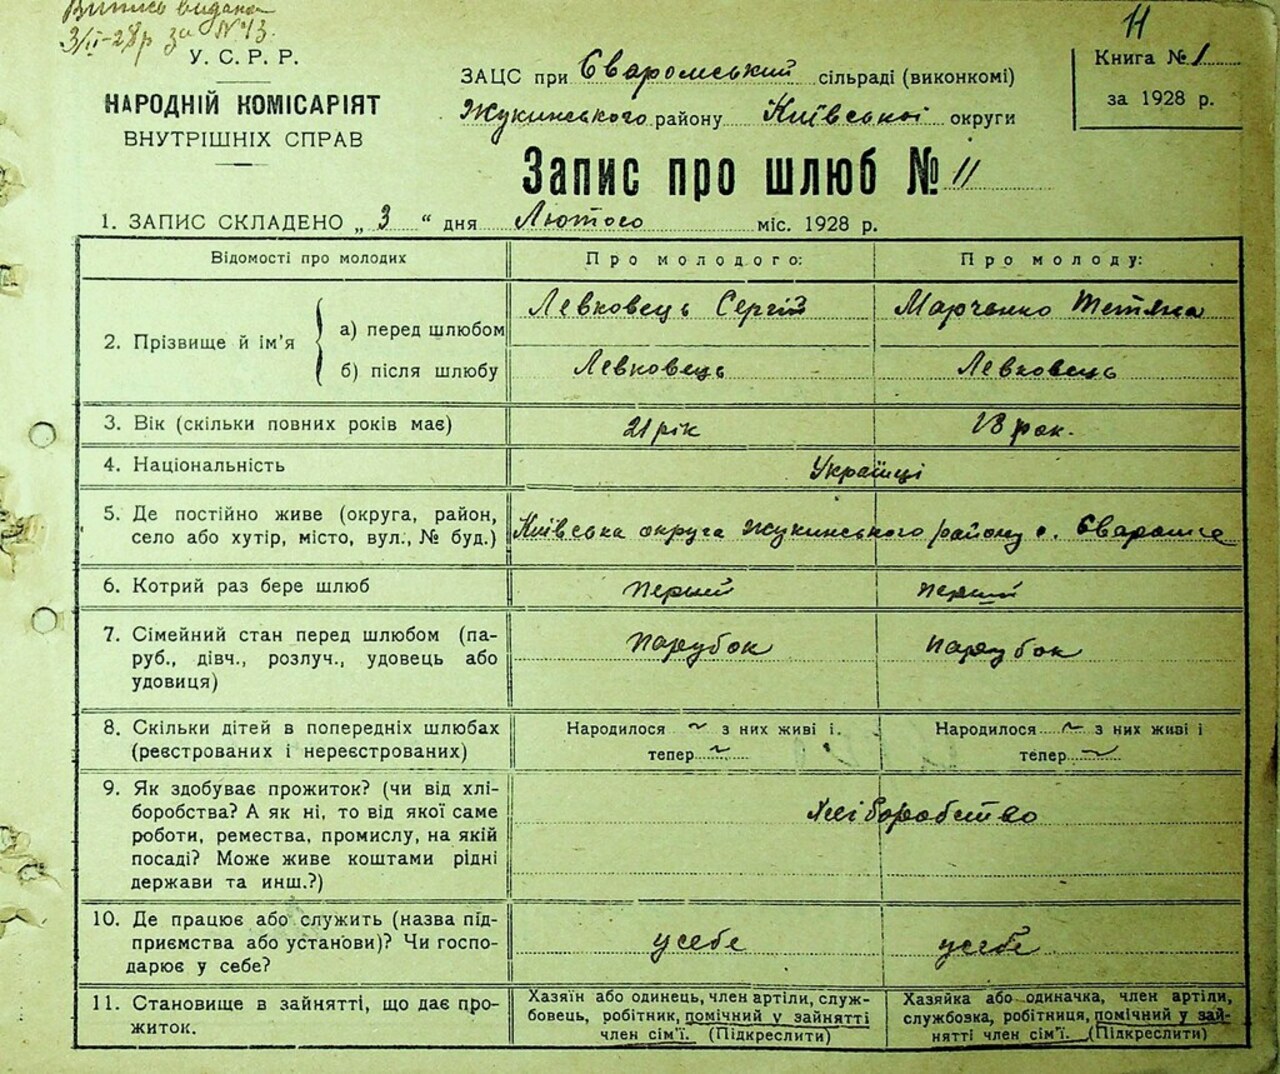 Випись видана
3/II-28р за №13.
11
У. С. Р. Р.
НАРОДНІЙ КОМІСАРІЯТ
ВНУТРІШНІХ СПРАВ
ЗАЦС при Єваромський сільраді (виконкомі)
Жукинського району Київської округи
Книга № 1
за 1928 р.
Запис про шлюб № 11
1. ЗАПИС СКЛАДЕНО „ 3 “ дня Лютого міс. 1928 р.
Відомості про молодих
Про молодого:
Про молоду:
2. Прізвище й ім’я
а) перед шлюбом
Левковець Сергій
Марченко Тетяна
б) після шлюбу
Левковець
Левковець
3. Вік (скільки повних років має)
21 рік
18 рок.
4. Національність
Українці
5. Де постійно живе (округа, район,
село або хутір, місто, вул., № буд.)
Київська округа Жукинського району с.
6. Котрий раз бере шлюб
перший
перший
7. Сімейний стан перед шлюбом (па-
руб., дівч., розлуч., удовець або
удовиця)
парубок
парубок
8. Скільки дітей в попередніх шлюбах
(реєстрованих і нереєстрованих)
Народилося ~ з них живі і.
тепер ~
Народилося ~ з них живі і
тепер ~
9. Як здобуває прожиток? (чи від хлі-
боробства? А як ні, то від якої саме
роботи, ремества, промислу, на якій
посаді? Може живе коштами рідні
держави та инш.?)
Хліборобство
10. Де працює або служить (назва під-
приємства або установи)? Чи госпо-
дарює у себе?
усебе
усебе
11. Становище в зайнятті, що дає про-
житок.
Хазяїн або одинець, член артіли, служ-
бовець, робітник, помічний у зайнятті
член сім’ї. (Підкреслити)
Хазяйка або одиначка, член артіли,
службовка, робітниця, помічний у зай-
нятті член сім’ї. (Підкреслити)